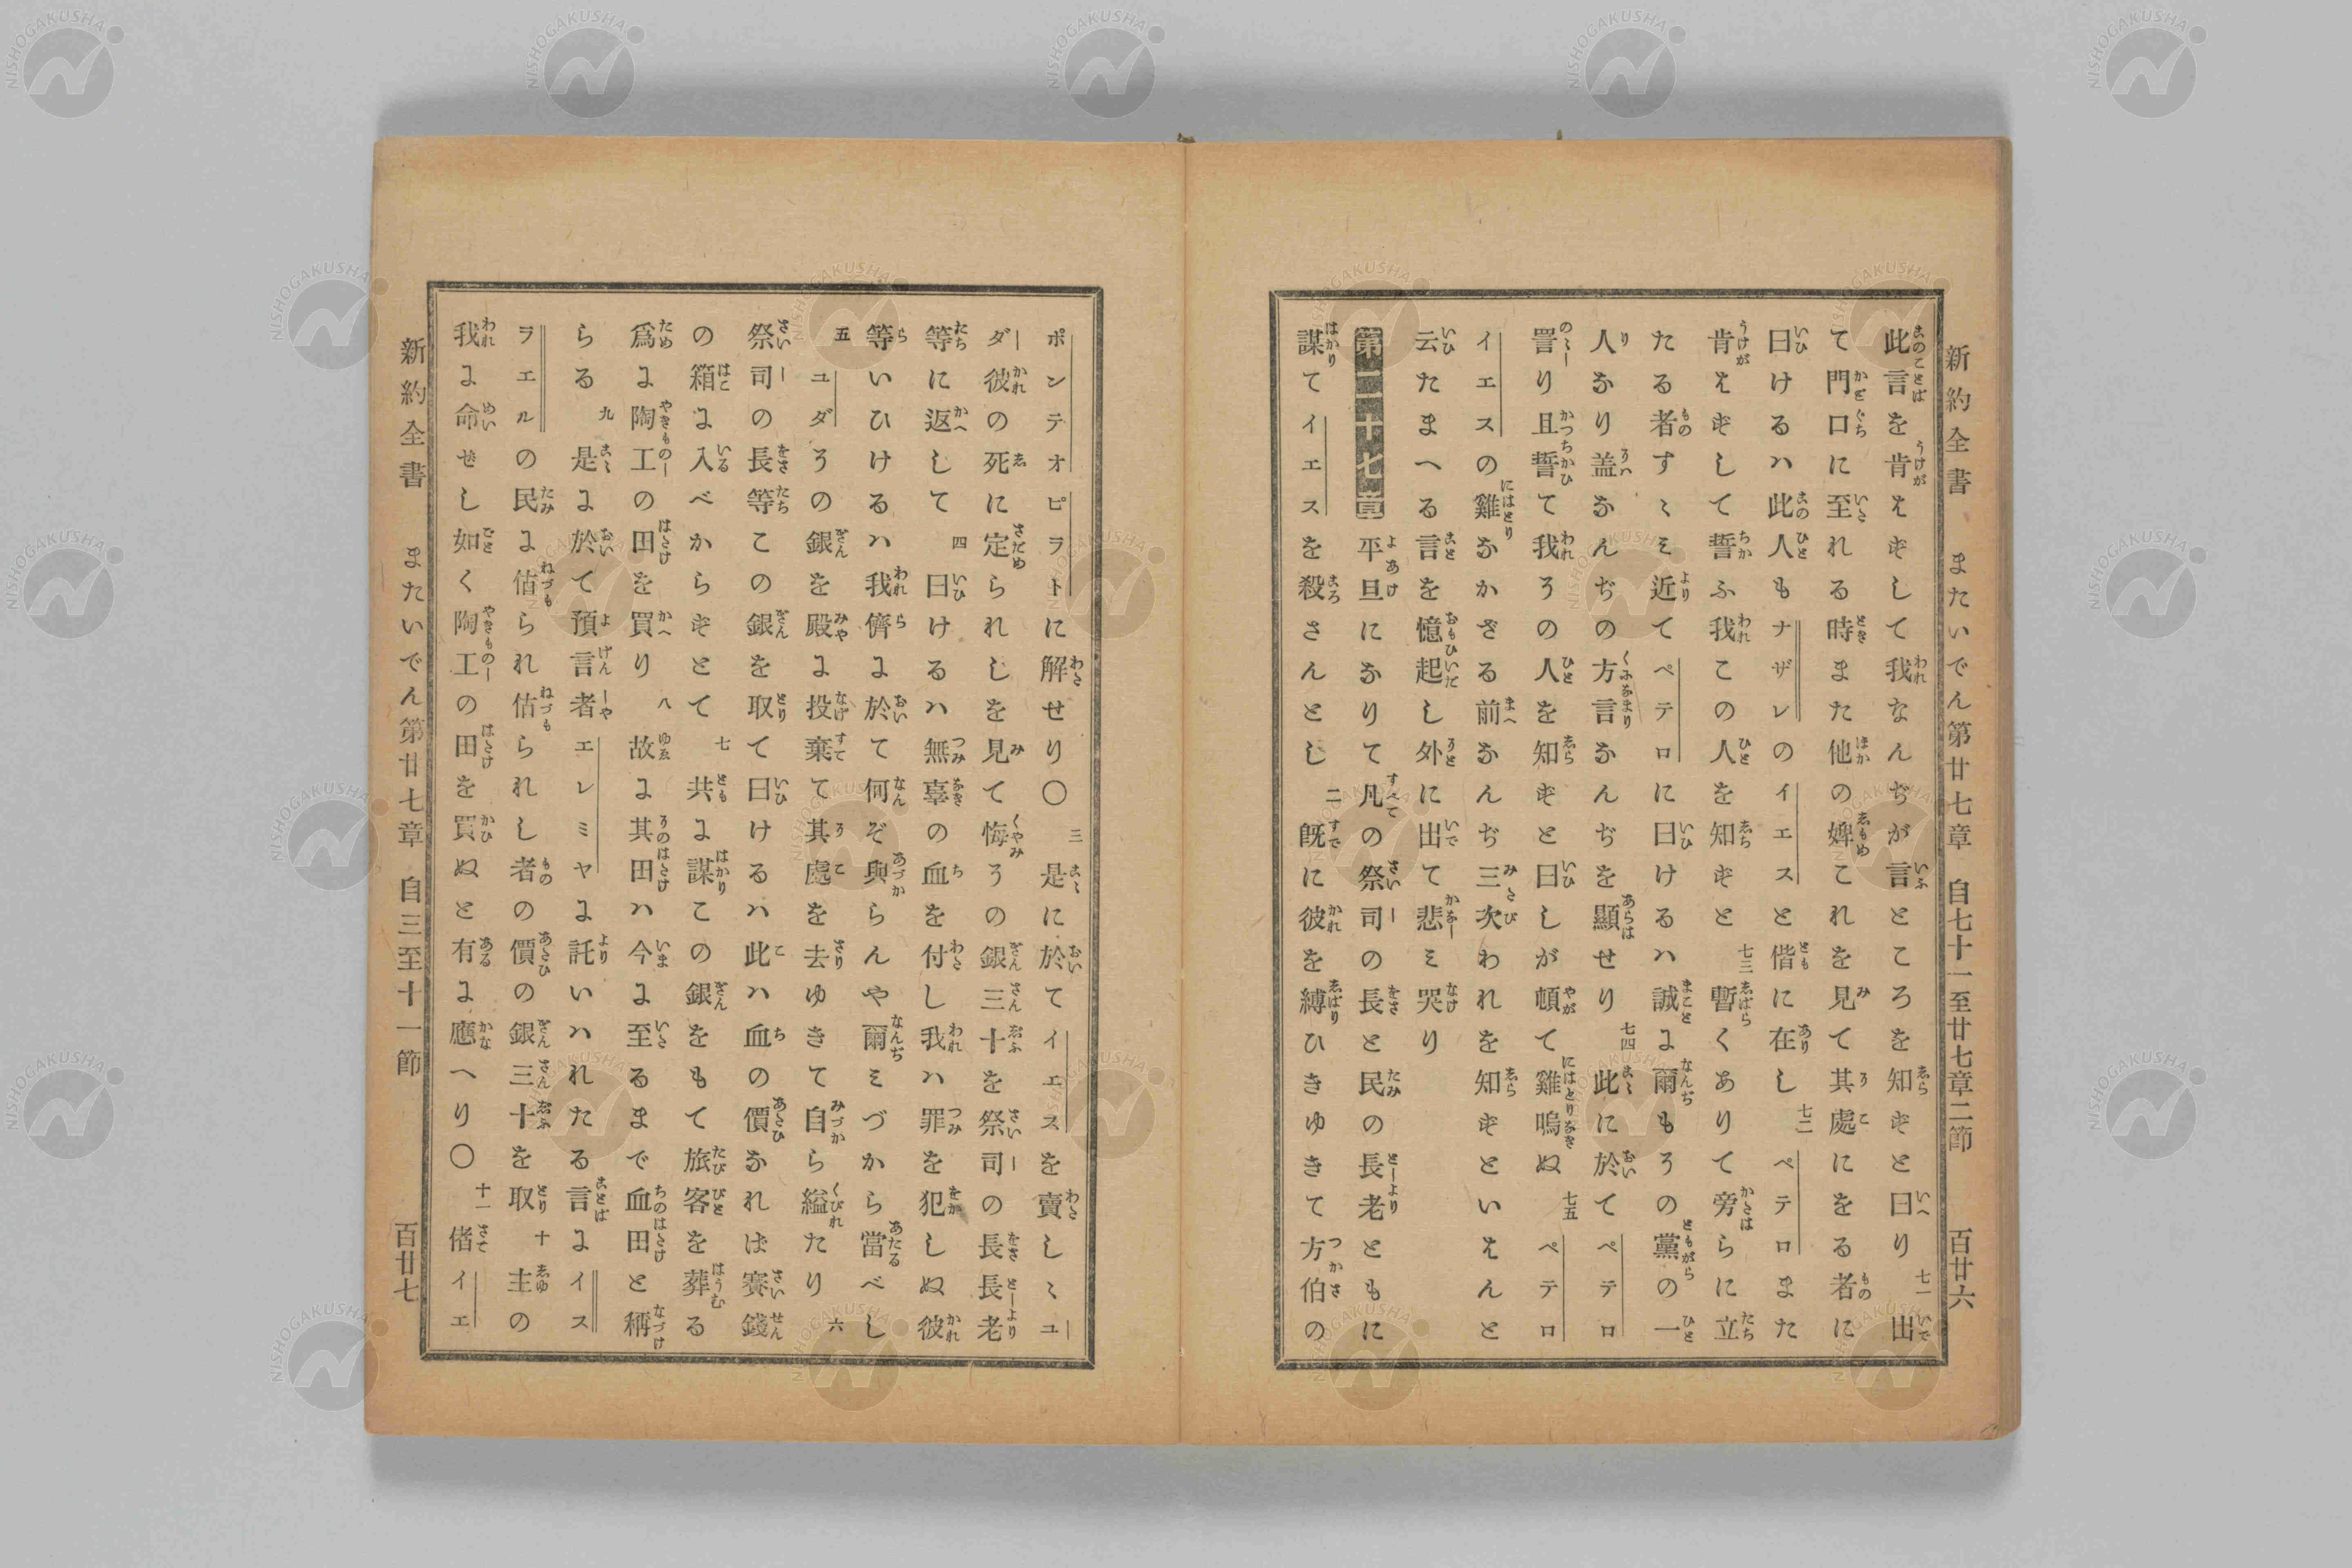 新約全書 またいでん第廿七章 自七十一至廿七章二節 百廿六
此言を肯えずして我なんぢが言ところを知ずと曰り 七一 出
て門口に至れる時また他の婢これを見て其處にをる者に
曰けるハ此人もナザレのイエスと偕に在し 七二 ペテロまた
肯えずして誓ふ我この人を知ずと 七三 暫くありて旁らに立
たる者すゝミ近てペテロに曰けるハ誠に爾もその黨の一
人なり盖なんぢの方言なんぢを顯せり 七四 此に於てペテロ
詈り且誓て我その人を知ずと曰しが頓て雞鳴ぬ 七五 ペテロ
イエスの雞なかざる前なんぢ三次われを知ずといえんと
云たまへる言を憶起し外に出て悲ミ哭り
第二十七章 平旦になりて凡の祭司の長と民の長老ともに
謀てイエスを殺さんとし 二 既に彼を縛ひきゆきて方伯の
ポンテオピラトに解せり〇 三 是に於てイエスを賣しゝユ
ダ彼の死に定られしを見て悔その銀三十を祭司の長長老
等に返して 四 曰けるハ無辜の血を付し我ハ罪を犯しぬ彼
等いひけるハ我儕に於て何ぞ與らんや爾ミづから當べし
五 ユダその銀を殿に投棄て其處を去ゆきて自ら縊たり 六
祭司の長等この銀を取て曰けるハ此ハ血の價なれば賽錢
の箱に入べからずとて 七 共に謀この銀をもて旅客を葬る
爲に陶工の田を買り 八 故に其田ハ今に至るまで血田と稱
らる 九 是に於て預言者エレミヤに託いハれたる言にイス
ラエルの民に估られ估られし者の價の銀三十を取 十 主の
我に命ぜし如く陶工の田を買ぬと有に應へり〇 十一 偖イエ
新約全書 またいでん第廿七章 自三至十一節 百廿七
NISHOGAKUSHA